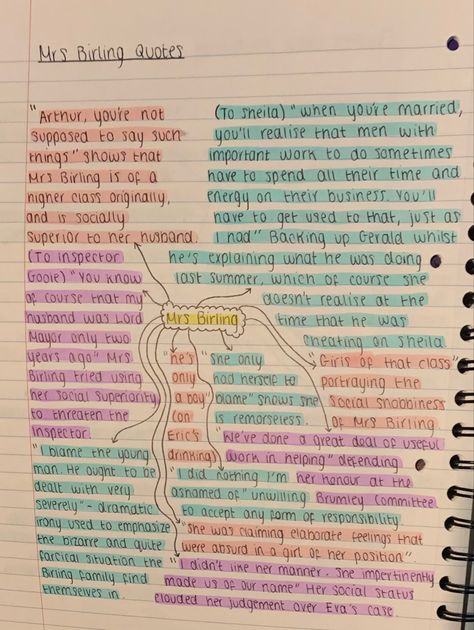 Mrs Birling Quotes
"Arthur, you're not
supposed to say such
things" shows that
Mrs Birling is of a
higher class originally,
and is socially
superior to her husband.
(To Sheila) "when you're married,
you'll realise that men with
important work to do sometimes
have to spend all their time and
energy on their business. You'll
have to get used to that, just as
I had" Backing up Gerald whilst
he's explaining what he was doing
last summer, which of course she
doesn't realise at the
time that he was
cheating on Sheila
(To Inspector
Goole) "You know
of course that my
husband was Lord
Mayor only two
years ago" Mrs
Birling tried using
her social superiority
to threaten the
Inspector.
Mrs Birling
"he's
only
a boy"
(on
Eric's
drinking)
"she only
had herself to
blame" shows she
is remorseless.
"Girls of that class"
portraying the
social snobbiness
of Mrs Birling
"We've done a great deal of useful
work in helping" defending
her honour at the
Brumley Committee
"I blame the young
man. He ought to be
dealt with very
severely" - dramatic
irony used to emphasize
the bizarre and quite
farcical situation the
Birling family find
themselves in.
"I did nothing I'm
asnamed of" unwilling
to accept any form of responsibility
"She was claiming elaborate feelings that
were absurd in a girl of her position".
"I didn't like her manner. She impertinently
made us of our name" Her social status
clouded her judgement over Eva's case.